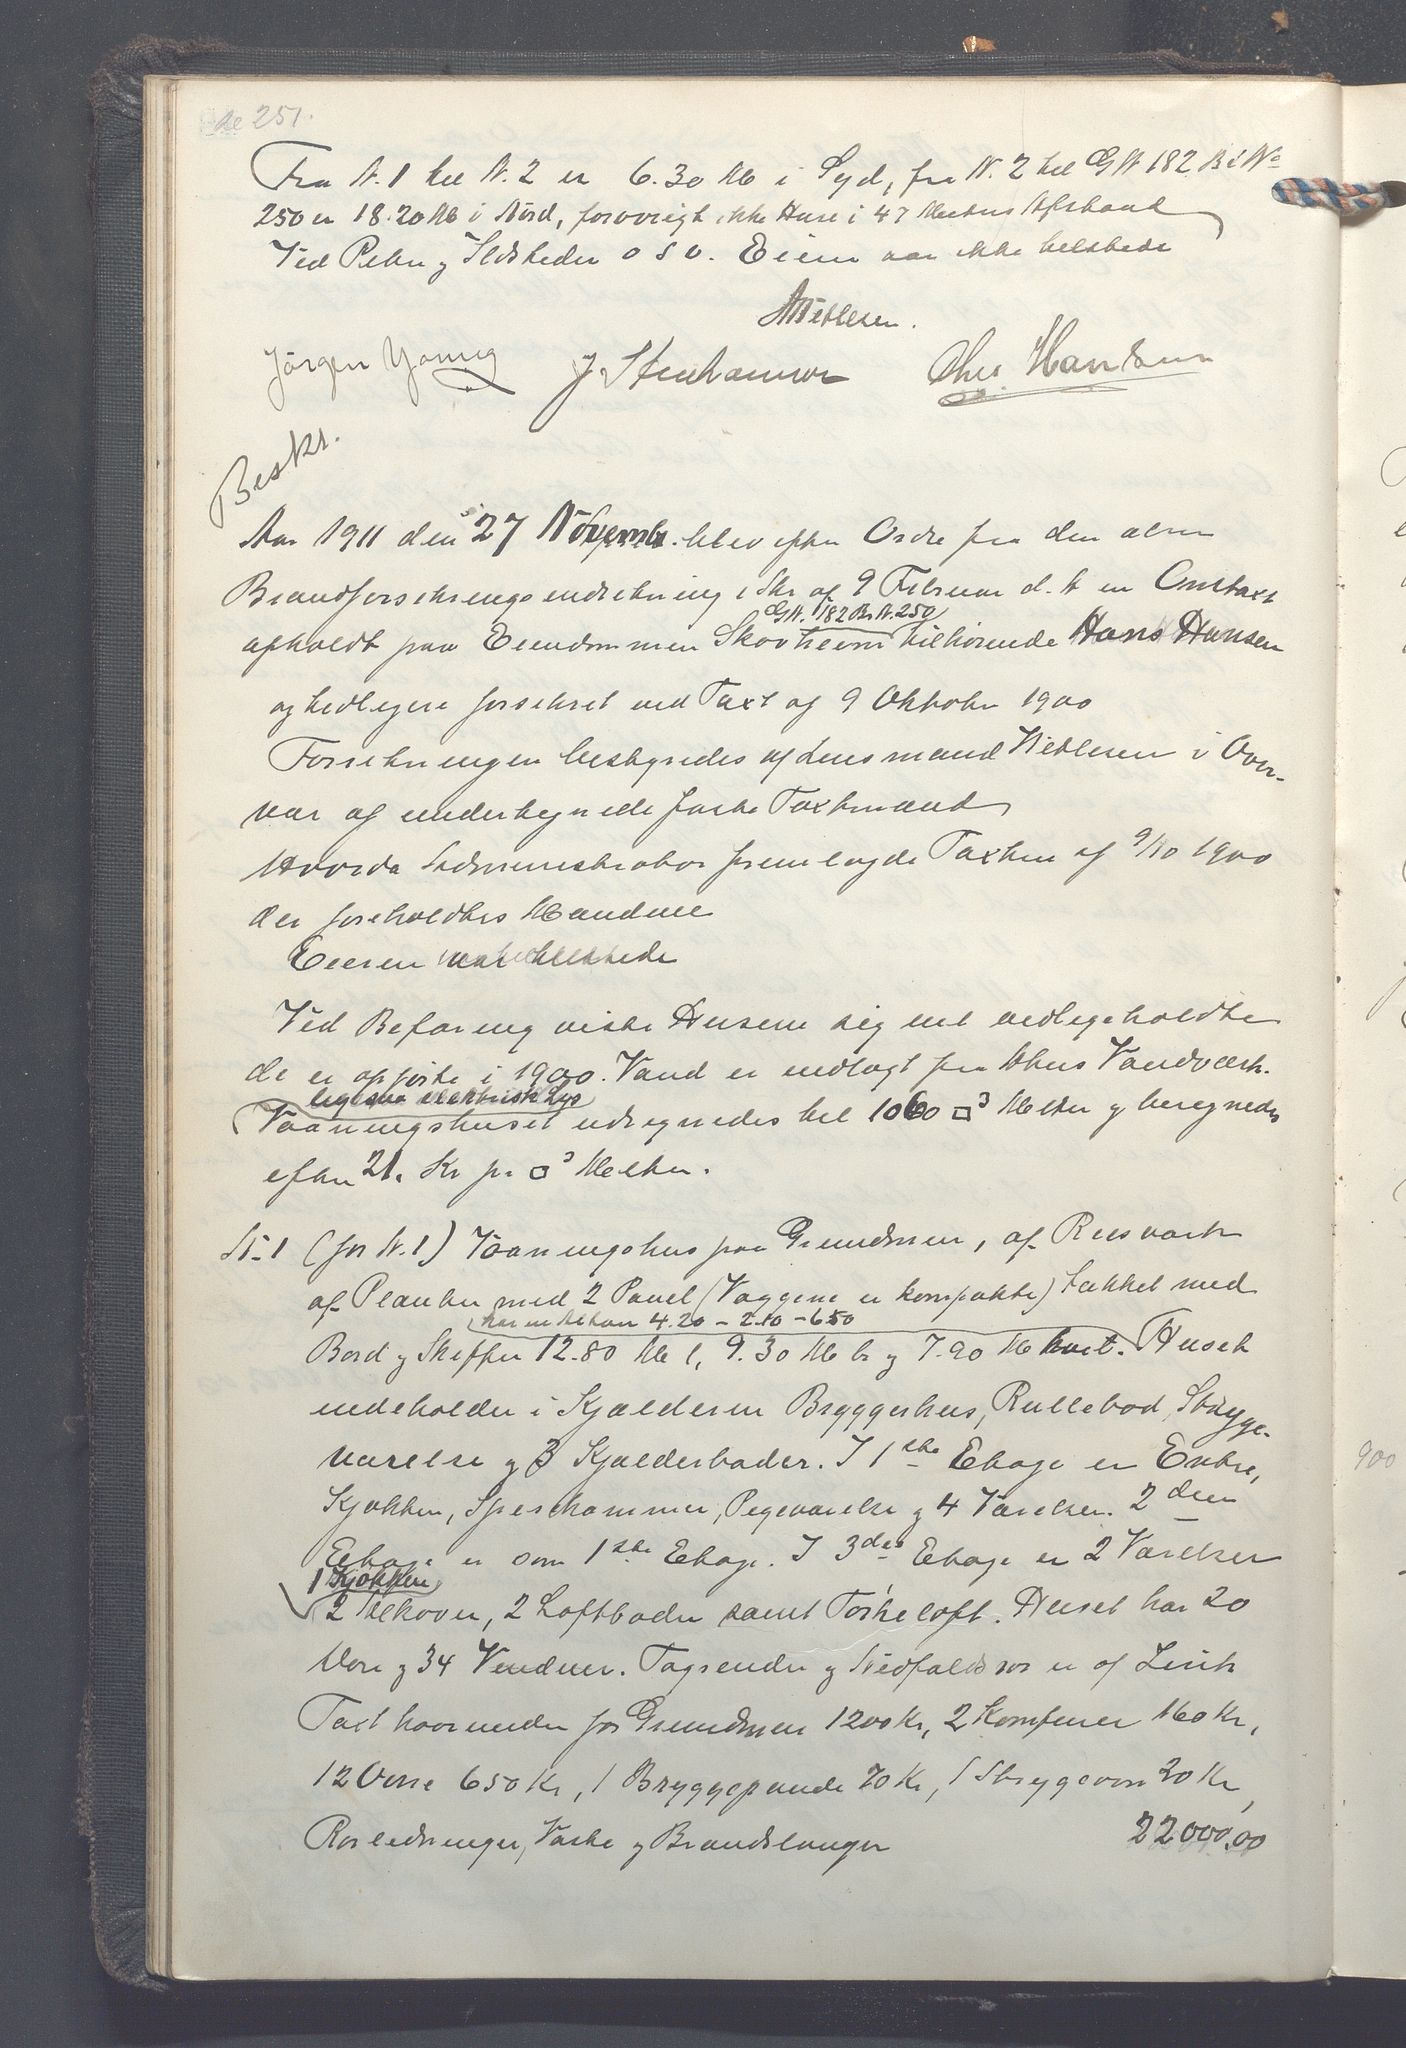 251.
Fra N. 1 til N. 2 er 6.30 M i Syd, fra N. 2 til GN 182 BrNo
250 er 18.20 M i Nord, forøvrigt ikke Huse i 47 Meters Afstand
Ved Peber og Ildsteder o s v. Eieren var ikke tilstede
Nettesen.
Jørgen Young J. Stenhamer Chr. Hansen
Beskr.
Aar 1911 den 27 Novemb. blev efter Ordre fra den alm
Brandforsikringsindretning i Skr af 9 Februar d. A en Omtaxt
GN. 182 Br N. 250
afholdt paa Eiendommen Skovheim tilhørende Hans Hansen
og tidligere forsikret ved Taxt af 9 Oktober 1900
Forretningen bestyredes af Lensmand Nettesen i Over-
vær af undertegnede faste Taxtmænd
Hvorda Administrator fremlagde Taxten af 9/10 1900
der foreholdtes Mændene
Eieren var tilstede
Ved Befaring viste Husene sig vel vedligeholdte
de er opførte i 1900. Vand er indlagt fra Ahus Vandværk.
ligesaa elektrisk Lys
Vaaningshuset udregnedes til 1060 □3 Meter og beregnedes
efter 21. Kr pr □3 Meter.
N-1 (før N. 1) Vaaningshus paa Grundmur, af Reisværk
af Planker med 2 Panel (Væggene er kompakte) tækket med
har en Altan 4.20 - 2.10 - 6.50
Bord og Skiffer 12.80 M l, 9.30 M br og 7.90 M høit. Huset
indeholder i Kjælderen Bryggerhus, Rullebod, Stryge-
værelse og 3 Kjælderboder. I 1ste Etage er Entre,
Kjøkken, Spiskammer, Pigeværelse og 4 Værelser. 2den
Etage er som 1ste Etage. I 3die Etage er 2 Værelser
1 Kjøkken
2 Alkover, 2 Loftboder samt Tørkeloft. Huset har 20
Døre og 34 Vinduer. Tagrender og Nedfaldsrør er af Zink
Taxt hvorunder for Grundmur 1200 Kr, 2 Komfurer 160 Kr,
12 Ovne 650 Kr, 1 Bryggepande 70 Kr, 1 Strygeovn 20 Kr,
Rørledninger, Vaske og Brandslanger 22000.00
900